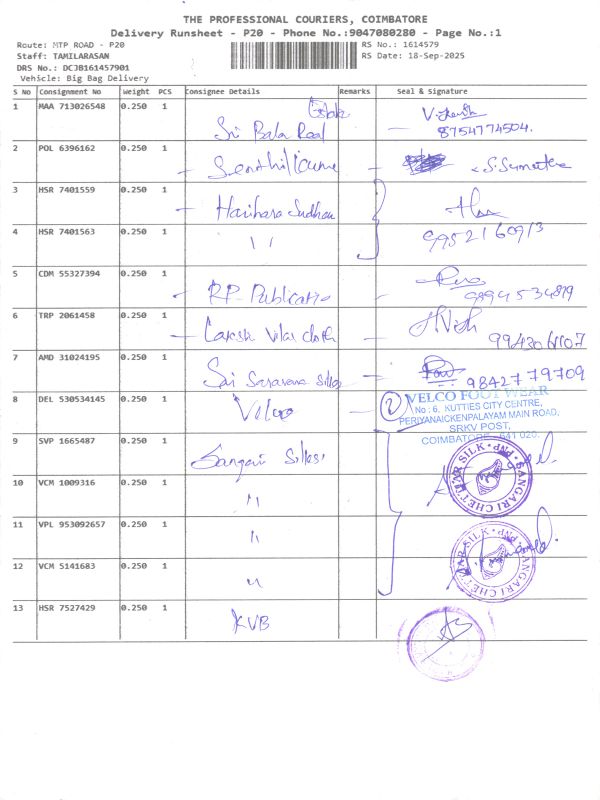 THE PROFESSIONAL COURIERS, COIMBATORE
Delivery Runsheet - P20 - Phone No.:9047080280 - Page No.:1
Route: MTP ROAD - P20 RS No.: 1614579
Staff: TAMILARASAN RS Date: 18-Sep-2025
DRS No.: DCJB161457901
Vehicle: Big Bag Delivery
S No Consignment No Weight PCS Consignee Details Remarks Seal & Signature
1 MAA 713026548 0.250 1 Sri Bala Real
8754774504.
2 POL 6396162 0.250 1
3 HSR 7401559 0.250 1 Harihara Sudhan
4 HSR 7401563 0.250 1 " 9952160913
5 CDM 55327394 0.250 1 RP Publication
9894534819
6 TRP 2061458 0.250 1 Vilas cloth
7 AMD 31024195 0.250 1 Sai Saravana silks 9842779709
8 DEL 530534145 0.250 1 Velco 2 VELCO FOOT WEAR
No : 6, KUTTIES CITY CENTRE,
PERIYANAICKENPALAYAM MAIN ROAD,
SRKV POST,
COIMBATORE - 641 020.
9 SVP 1665487 0.250 1 Sangari Silks SANGARI CHETTIAR SILK PNP
10 VCM 1009316 0.250 1 "
11 VPL 953092657 0.250 1 " SANGARI CHETTIAR SILK PNP
12 VCM 5141683 0.250 1 "
13 HSR 7527429 0.250 1 KVB